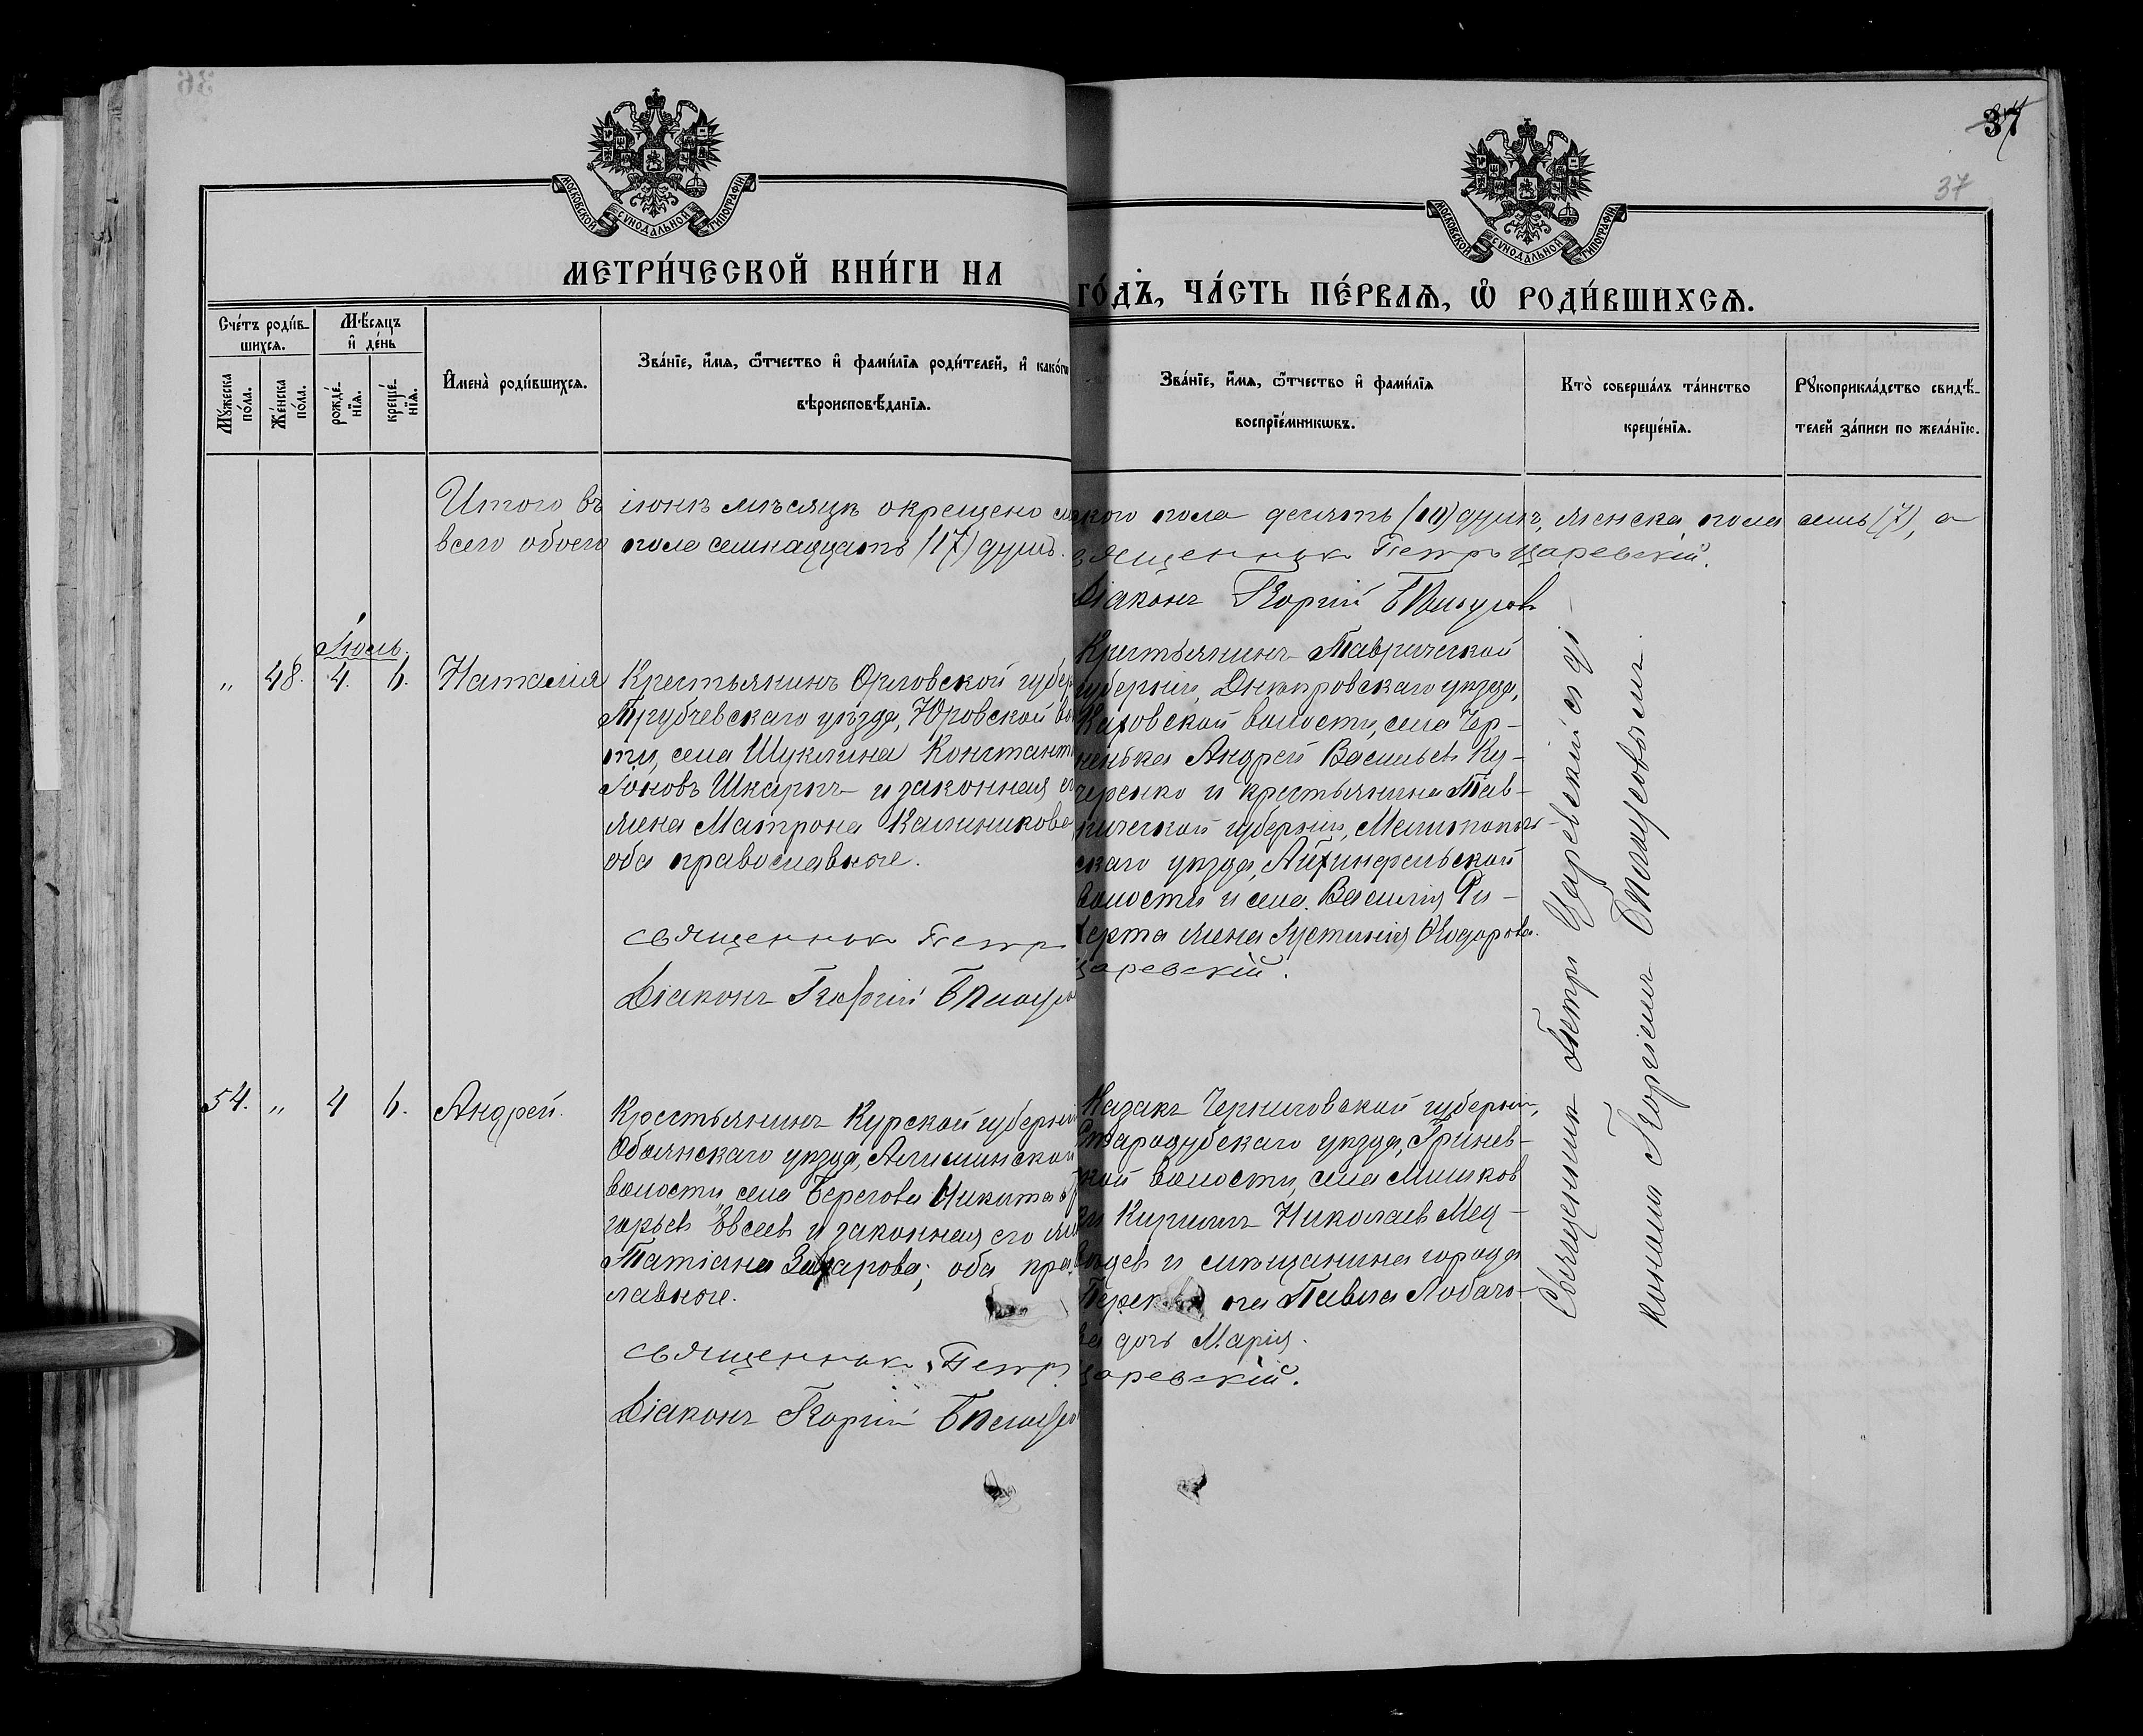 36
37
37
МОСКОВСКОЙ СУНОДАЛЬНОЙ ТИПОГРАФІИ
МОСКОВСКОЙ СУНОДАЛЬНОЙ ТИПОГРАФІИ
МЕТРИ́ЧЕСКОЙ КНИ́ГИ НА
ГО́ДЪ, ЧА́СТЬ ПЕ́РВАѦ, Ѡ РОДИ́ВШИХСѦ.
Сче́тъ роди́в-
шихсѧ.
Мꙋжеска
по́ла.
Же́нска
по́ла.
Мѣ́сѧцъ
и҆ де́нь
рожде́-
нїѧ.
креще́-
нїѧ.
И҆мена̀ роди́вшихсѧ.
Зва́нїе, и҆́мѧ, ѻ҆́тчество и҆ фами́лїѧ роди́телей, и҆ како́гѡ
вѣроисповѣ́данїѧ.
Зва́нїе, и҆́мѧ, ѻ҆́тчество и҆ фами́лїѧ
воспрїе́мникѡвъ.
Кто̀ соверша́лъ та́инство
креще́нїѧ.
Рꙋкоприкла́дство свидѣ́-
телей за́писи по жела́нїю.
Итого въ іюнѣ мѣсяцѣ окрещено
ского пола десять (10) душъ, женска пола семь (7), а
всего обоего пола семнадцать (17) душъ.
Священникъ Петръ Царевскій.
Діаконъ Георгій
Іюль.
„ 48. 4. 6. Наталія
Крестьянинъ Орловской губер
Трубчевскаго уѣзда, Юровской во
сти, села Шуклина Констант
Іоновъ Шкаринъ и законная е
жена Матрона Калиникова
оба православные.
Священникъ Петръ
Діаконъ Георгій
Крестьянинъ Таврической
губерніи, Днѣпровскаго уѣзда,
Каховской волости, села Чер-
ненька Андрей Васильевъ Ку-
черенко и крестьянина Тав-
рической губерніи, Мелитополь-
скаго уѣзда,
волости и села Василія Ри-
херта жена Іустинія Ѳеодорова.
Царевскій.
Священникъ Петръ Царевскій съ ді
кономъ Георгіемъ
54. „ 4 6. Андрей.
Крестьянинъ Курской губерніи
Обоянскаго уѣзда,
волости, села Берегова Никита
горьевъ Евсеевъ и законная его же
Татіана Захарова; оба пра
лавные.
Священникъ Петръ
Діаконъ Георгій
Казакъ Черниговской губерніи,
Стародубскаго уѣзда, Гринев-
ской волости, села Мишков
ки Кириллъ Николаевъ Мед-
вѣдевъ и мѣщанина города
Перек па Павла Лобачо-
ва дочь Марія.
Царевскій.